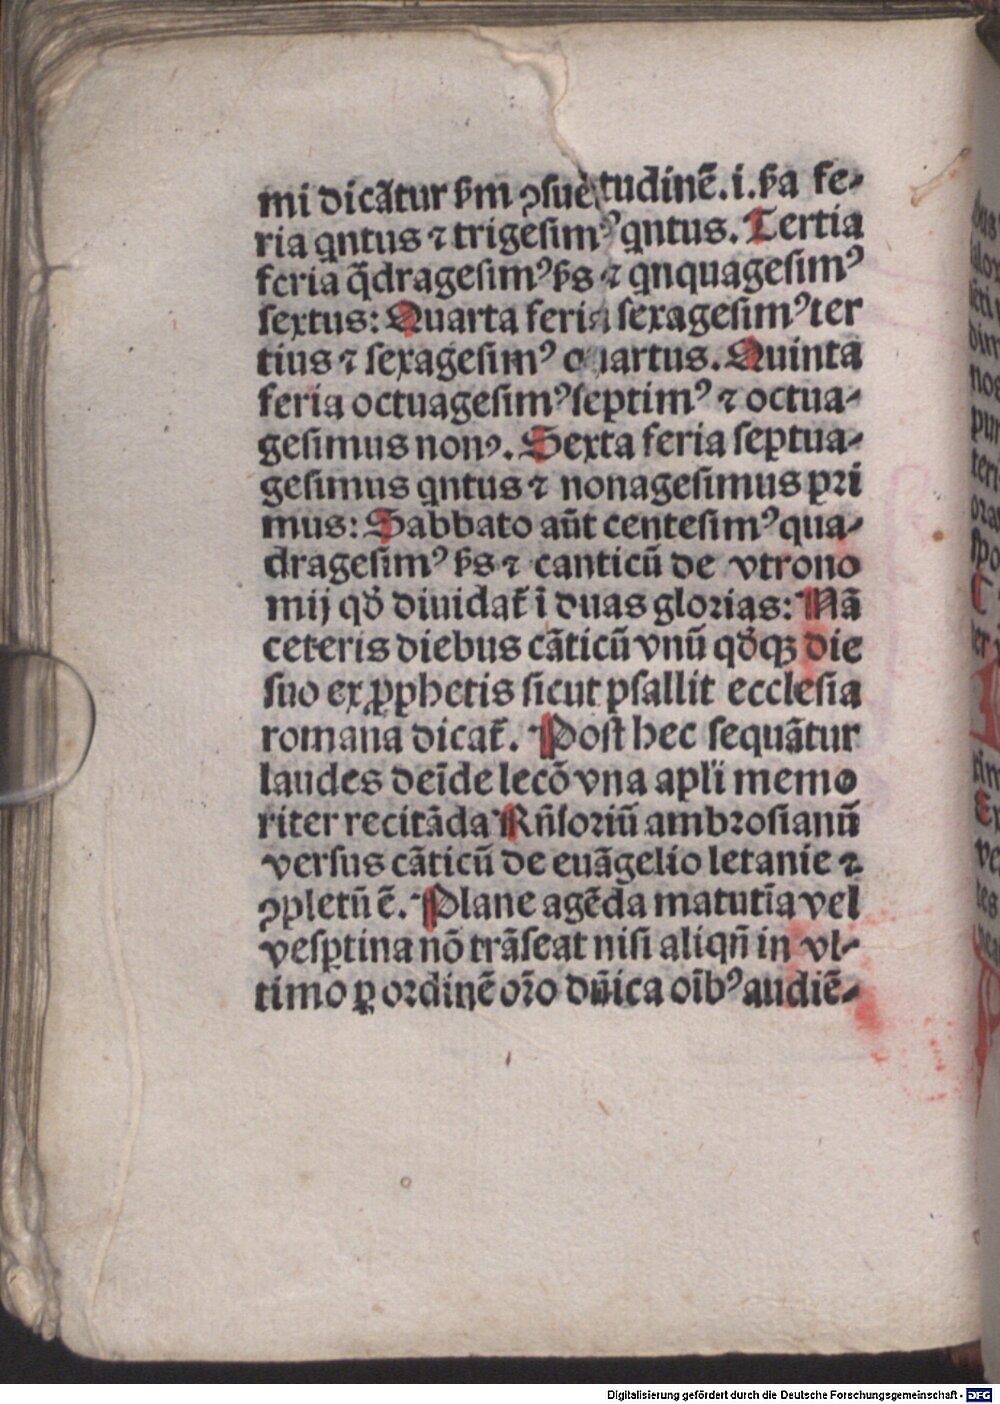 mi dicãtur ẜm ꝯsuetudinẽ.i.ẜa fe⸗
ria qntus ⁊ trigesimꝰ qntus. Tertia
feria q̃dragesimꝰ ẜs ⁊ qnquagesimꝰ
sextus: Quarta feria sexagesimꝰ ter
tius ⁊ sexagesimꝰ quartus. Quinta
feria octuagesimꝰ septimꝰ ⁊ octua⸗
gesimus nonꝰ. Sexta feria septua⸗
gesimus qntus ⁊ nonagesimus pri
mus: Sabbato aũt centesimꝰ qua⸗
dragesimꝰ ẜs ⁊ canticũ de vtrono
mij qð diuidat᷑ ĩ duas glorias: Nã
ceteris diebus cãticũ vnũ qðqꝫ die
suo ex ꝓphetis sicut psallit ecclesia
romana dicat᷑. Post hec sequãtur
laudes deĩde lecõ vna apl̃i memo
riter recitãda Rñsoriũ ambrosianũ
versus cãticũ de euãgelio letanie ⁊
ꝯpletũ ẽ. Plane agẽda matutĩa vel
vesꝑtina nõ trãseat nisi aliqñ in vl⸗
timo ꝑ ordinẽ oro dñica oĩbꝰ audiẽ⸗
Digitalisierung gefördert durch die Deutsche Forschungsgemeinschaft - DFG